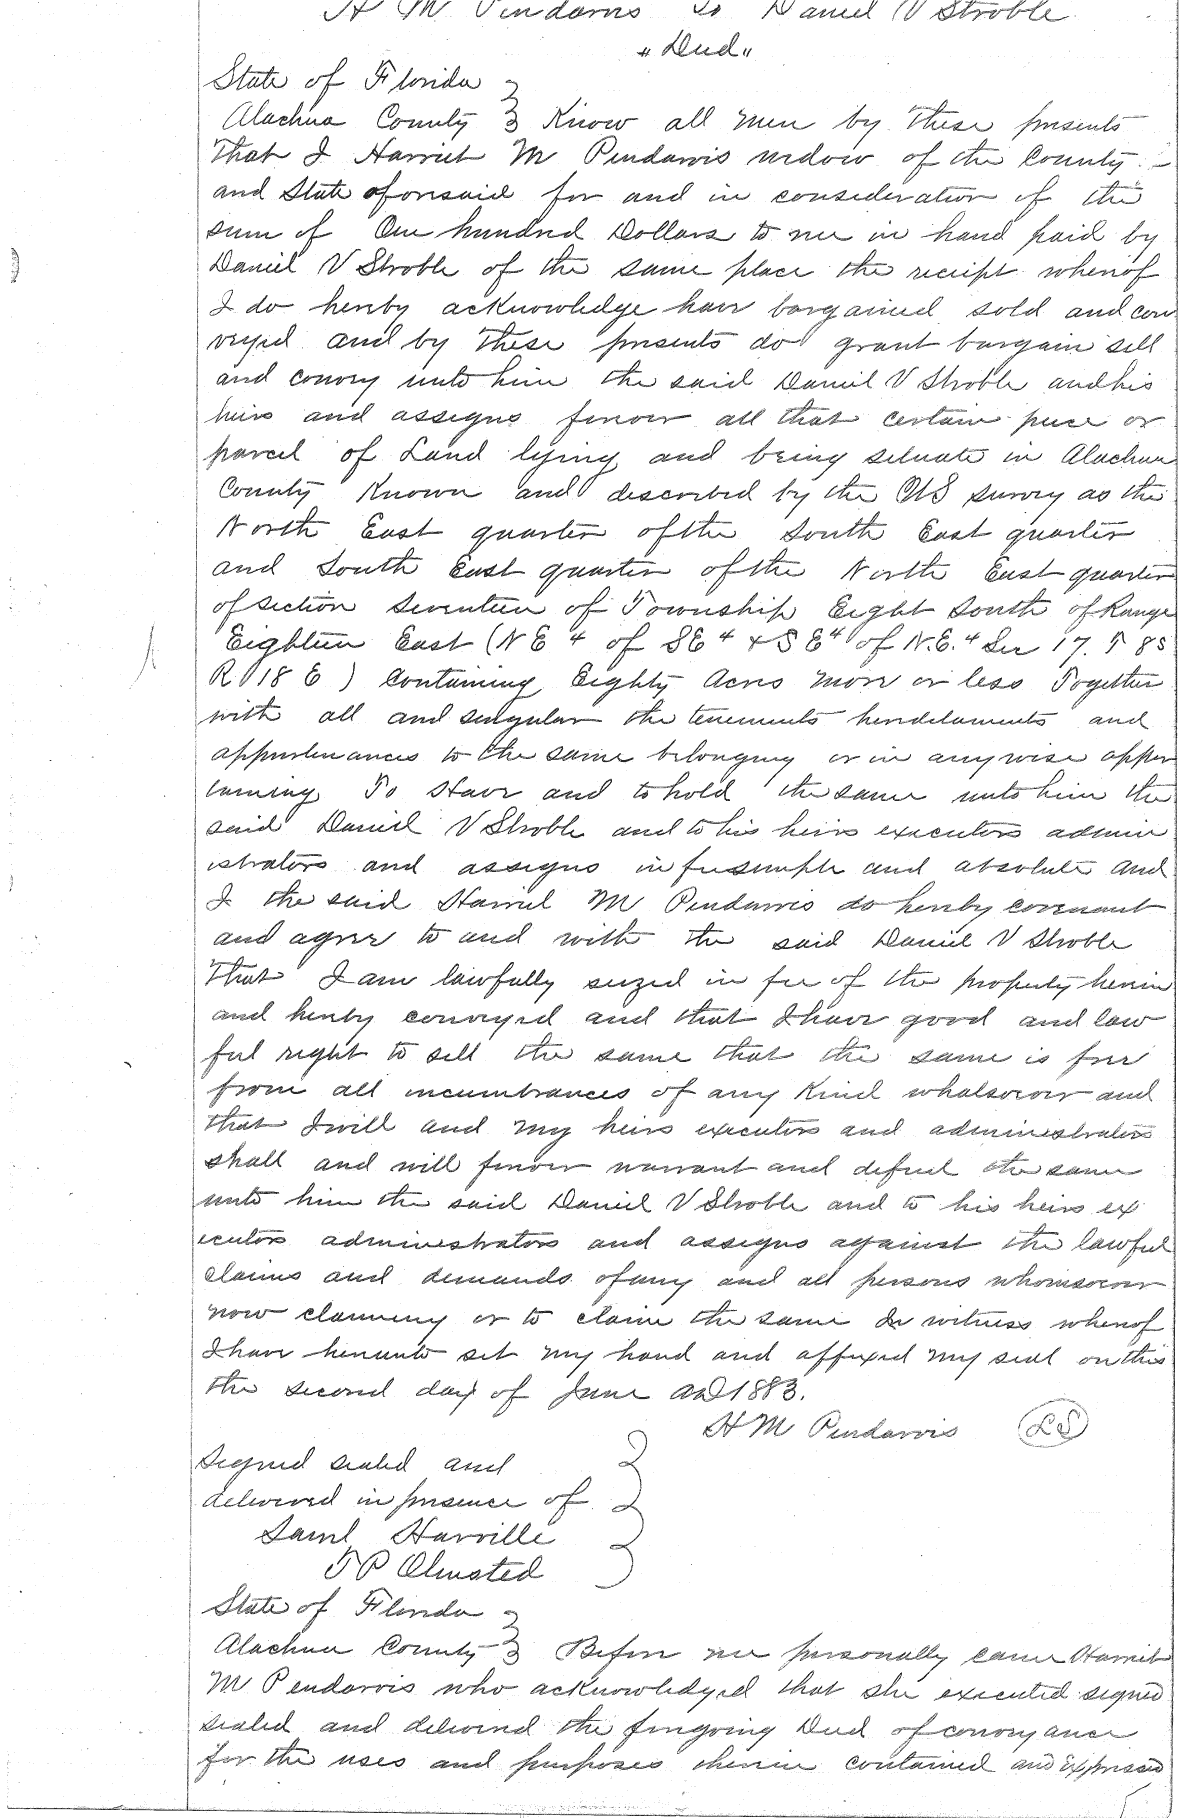 H M Pendarvis to Daniel V Stroble
"Deed"
State of Florida
Alachua County } Know all men by these presents
That I Harriet M Pendarvis widow of the County
and State aforesaid for and in consideration of the
sum of One hundred Dollars to me in hand paid by
Daniel V Stroble of the same place the receipt whereof
I do hereby acknowledge have bargained sold and con
veyed and by these presents do grant bargain sell
and convey unto him the said Daniel V Stroble and his
heirs and assigns forever all that certain piece or
parcel of Land lying and being situate in Alachua
County Known and described by the US survey as the
North East quarter of the South East quarter
and South East quarter of the North East quarter
of section Seventeen of Township Eight South of Range
Eighteen East (N E 4 of SE 4 & S E 4 of N.E. 4 Sec 17. T 8 S
R 18 E) Containing Eighty Acres more or less Together
with all and singular the tenements hereditaments and
appurtenances to the same belonging or in any wise apper
taining To Have and to hold the same unto him the
said Daniel V Stroble and to his heirs executors admin
istrators and assigns in fee simple and absolute and
I the said Harriet M Pendarvis do hereby covenant
and agree to and with the said Daniel V Stroble
That I am lawfully seized in fee of the property herein
and hereby conveyed and that I have good and law
ful right to sell the same that the same is free
from all incumbrances of any Kind whatsoever and
that I will and my heirs executors and administrators
shall and will forever warrant and defend the same
unto him the said Daniel V Stroble and to his heirs ex
ecutors administrators and assigns against the lawful
claims and demands of any and all persons whomsoever
now claiming or to claim the same In witness whereof
I have hereunto set my hand and affixed my seal on this
the second day of June AD 1883.
H M Pendarvis (LS)
Signed sealed and
delivered in presence of
Saml Harville
T P Olmsted
State of Florida
Alachua County } Before me personally came Harriet
M Pendarvis who acknowledged that she executed signed
sealed and delivered the foregoing Deed of conveyance
for the uses and purposes therein contained and expressed